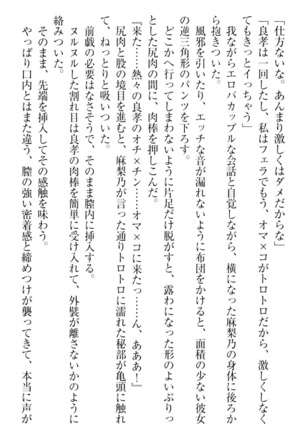 「仕方ないな。あんまり激しくはダメだからな」
「良孝は一回したし、私はフェラでもう、オマ×コがトロトロだから、激しくしなくてもきっとイっちゃう」
我ながらエロバカップルな会話と自覚しながら、横になった麻梨乃の身体に後ろから抱きついた。
風邪を引いたり、エッチな音が漏れないように布団をかけると、面積の少ない彼女の逆三角形のパンツを下ろす。
どこかへ行ってしまわないように片足だけ脱がすと、露わになった形のよいぷりっとした尻肉の間に、肉棒を押しこんだ。
「来た……熱々の良孝のオチ×チン……オマ×コに来たっ……ん、あああ！」
尻肉と股の境目を進むと、麻梨乃が言った通りトロトロに濡れた秘部が亀頭に触れて、ねっとりと吸いついた。
前戯の必要はなさそうで、そのまま膣内に挿入する。
ヌルヌルした割れ目は良孝の肉棒を簡単に受け入れて、外襞が離さないかのように絡みついた。
そのまま、先端を挿入してその感触を味わう。
やっぱり口内とはまた違う、膣の強い密着感と締めつけが襲ってきて、本当に声が